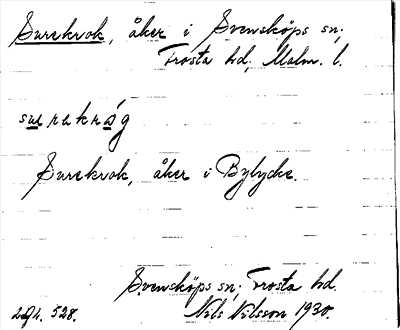 Surekrok, åker i Svensköps sn;
Frosta hd, Malm. l.
Surekrok, åker i Bylycke.
Svensköps sn; Frosta hd.
528. Nils Nilsson 1930.